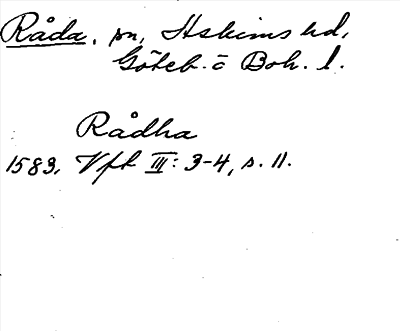 Råda. sn, Askims hd,
Göteb. o Boh. l.
Rådha
1583. Vfk III: 3-4, s. 11.